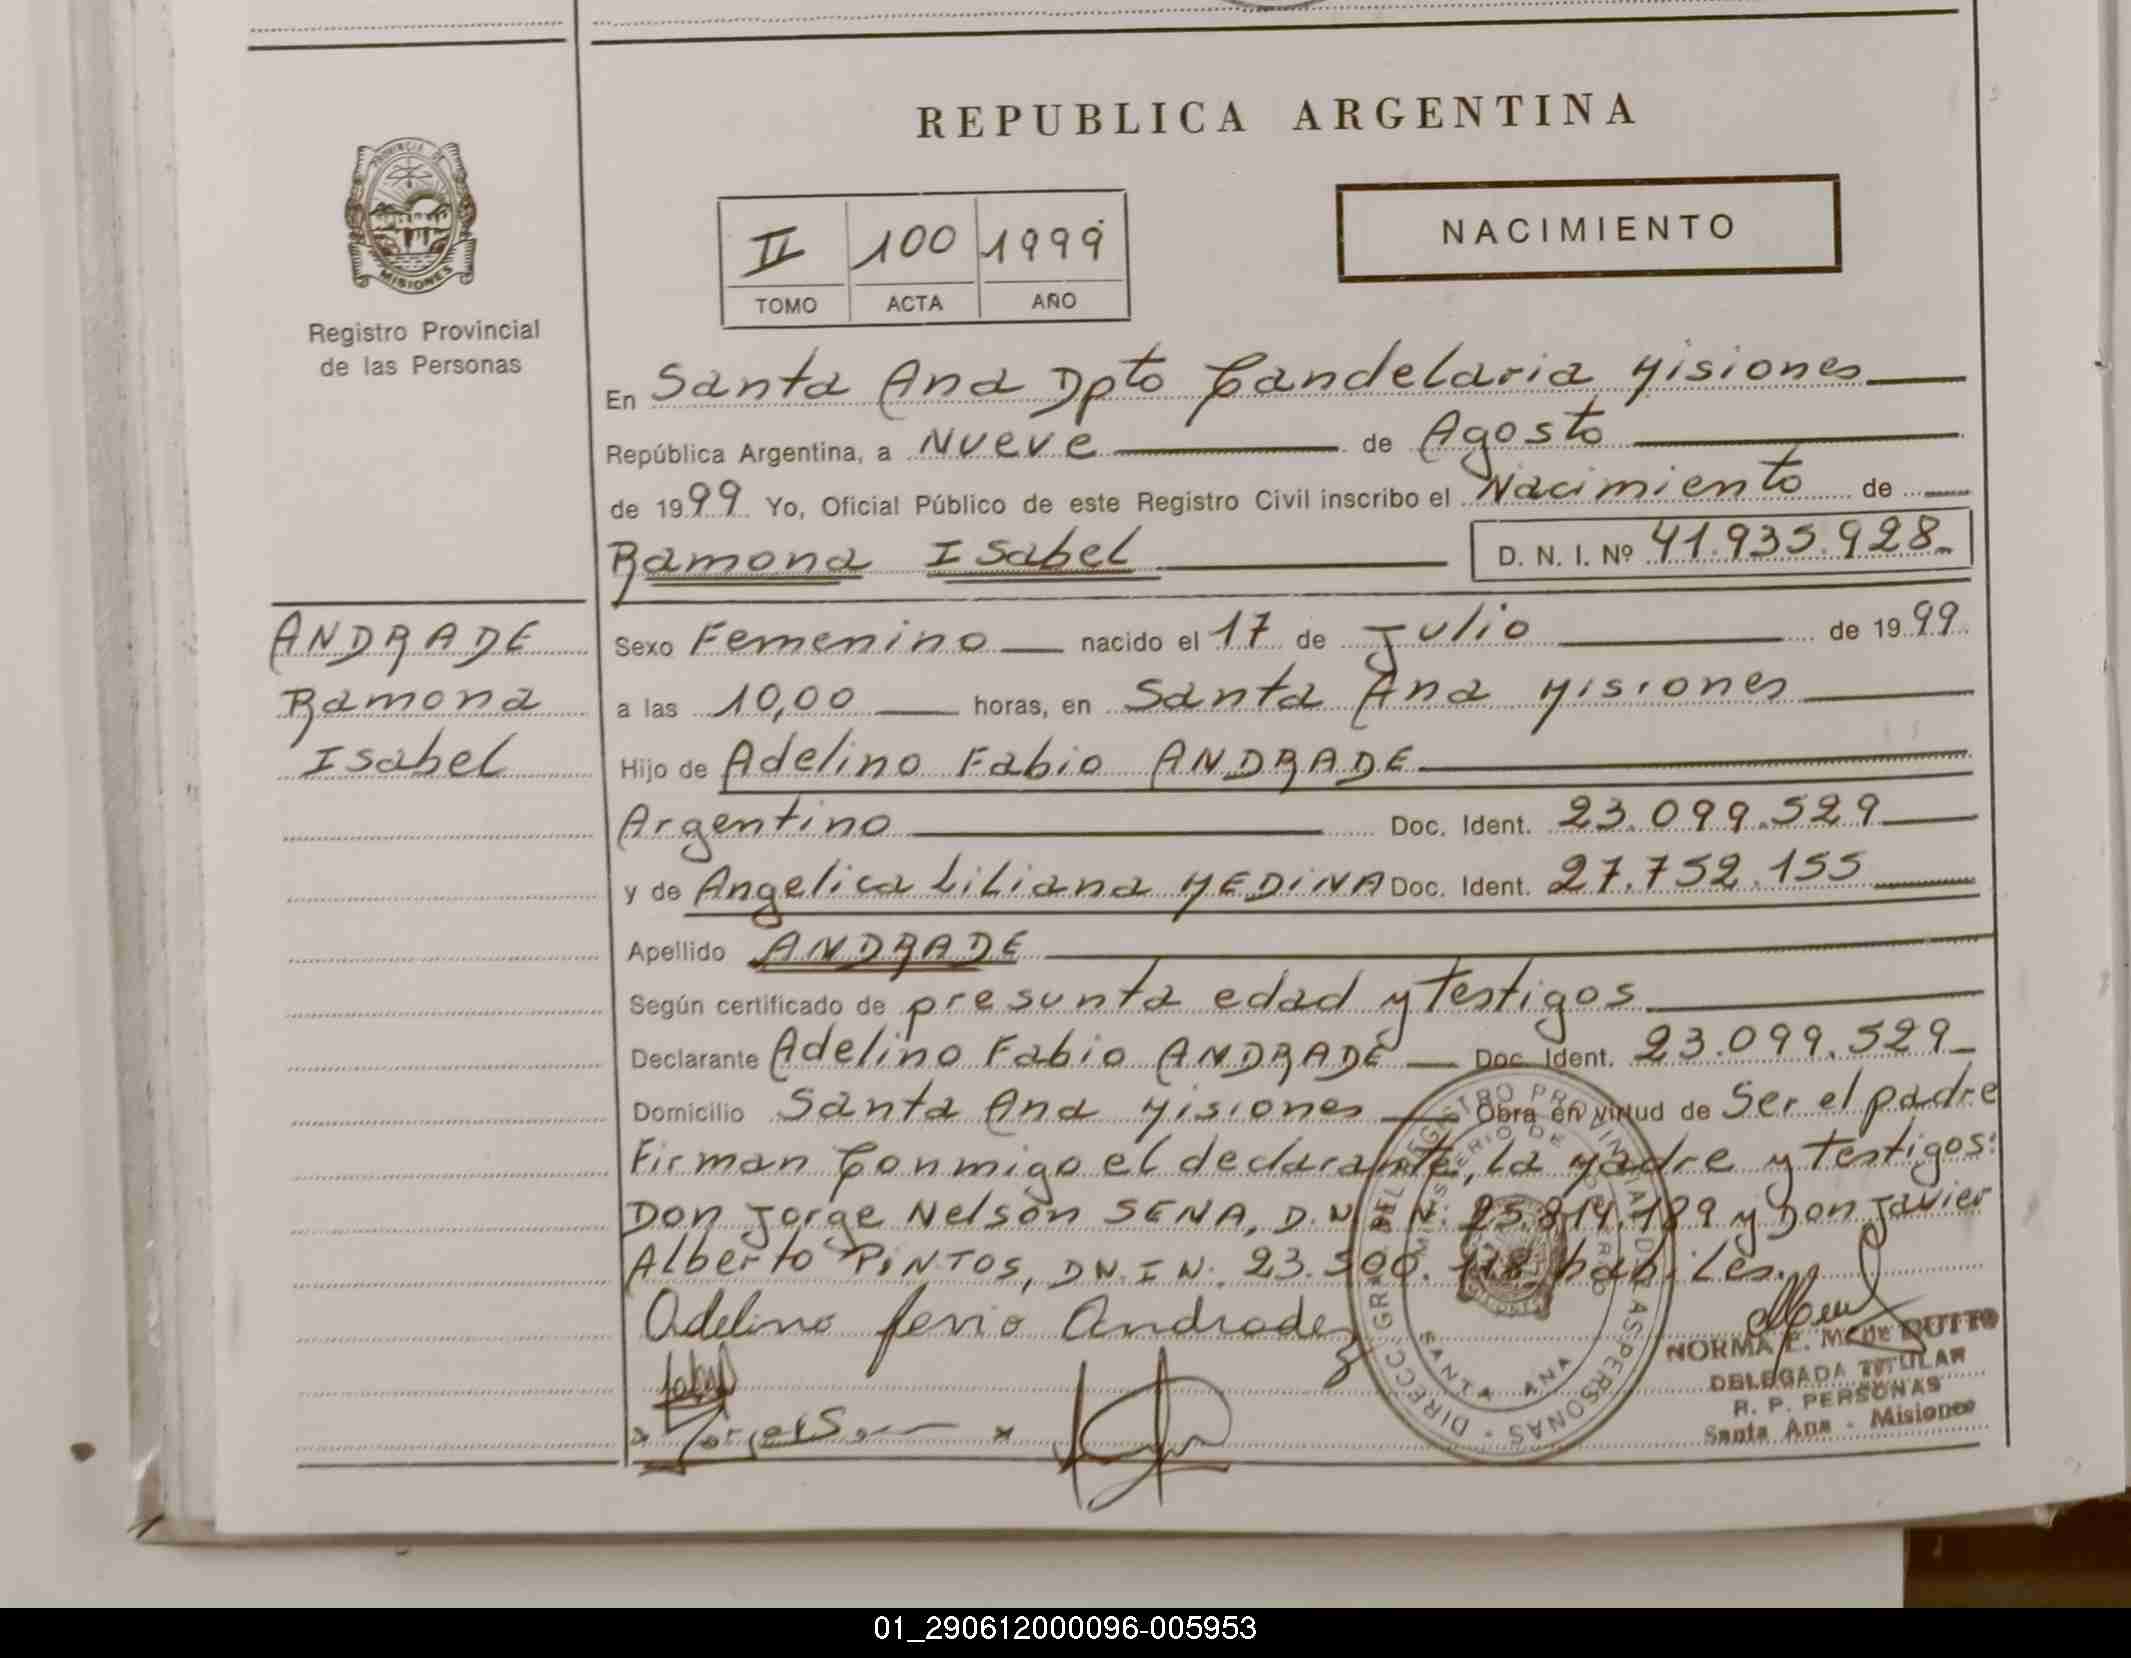 REPUBLICA ARGENTINA
NACIMIENTO
II 100 1999
TOMO ACTA AÑO
PROVINCIA DE
MISIONES
Registro Provincial
de las Personas
En Santa Ana Dpto Candelaria Misiones
República Argentina, a Nueve de Agosto
de 1999 Yo, Oficial Público de este Registro Civil inscribo el Nacimiento de
Ramona Isabel D. N. I. Nº 41.935.928
ANDRADE
Ramona
Isabel
Sexo Femenino nacido el 17 de Julio de 1999
a las 10,00 horas, en Santa Ana Misiones
Hijo de Adelino Fabio ANDRADE
Argentino Doc. Ident. 23.099.529
y de Angelica Liliana MEDINA Doc. Ident. 27.752.155
Apellido ANDRADE
Según certificado de presunta edad y Testigos
Declarante Adelino Fabio ANDRADE Doc. Ident. 23.099.529
Domicilio Santa Ana Misiones Obra en virtud de Ser el padre
Firman Conmigo el declarante, la Madre y Testigos:
Don Jorge Nelson SENA, D.N.I N. 25.814.189 y Don Javier
Alberto PINTOS, DN.I N. 23.500.118 habiles.
Adelino Andrade
NORMA E. DUTTO
DELEGADA TITULAR
R. P. PERSONAS
Santa Ana - Misiones
DIRECC. GRAL. DEL REGISTRO PROVINCIAL DE LAS PERSONAS
MINISTERIO DE GOBIERNO
SANTA ANA
01_290612000096-005953